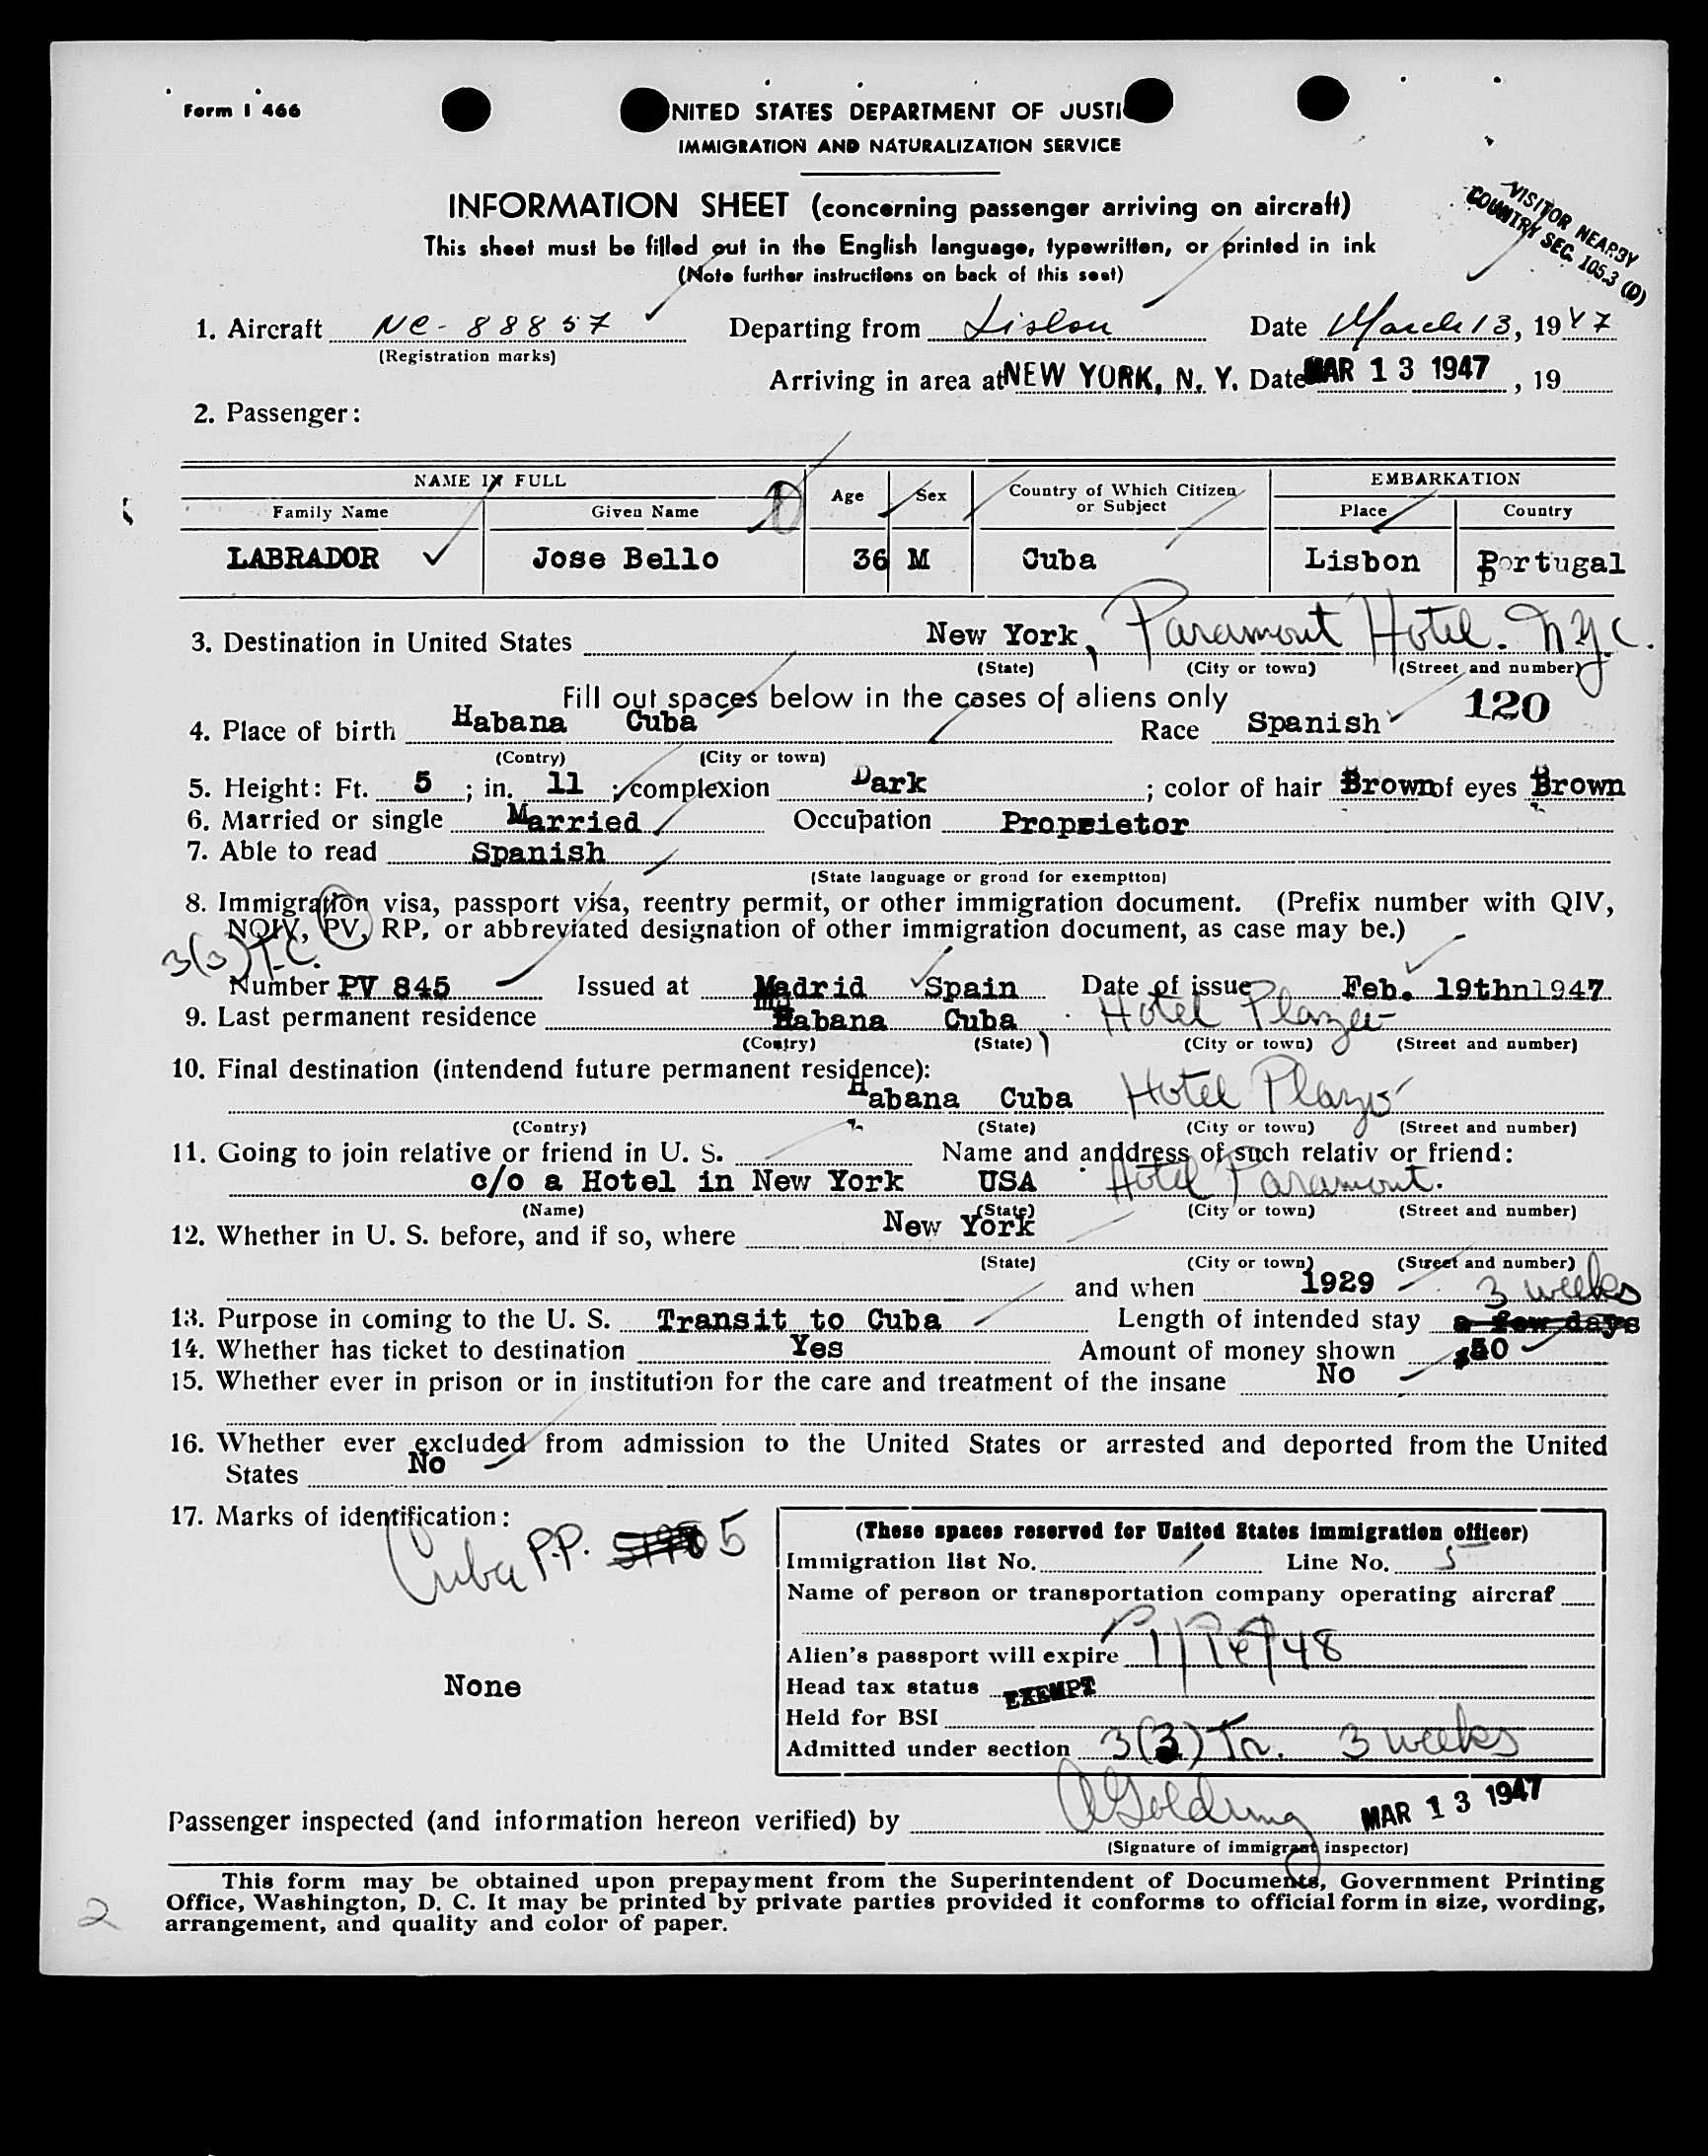 Form I 466
NITED STATES DEPARTMENT OF JUSTI
IMMIGRATION AND NATURALIZATION SERVICE
INFORMATION SHEET (concerning passenger arriving on aircraft)
This sheet must be filled out in the English language, typewritten, or printed in ink
(Note further instructions on back of this seet)
VISITOR NEARBY
COUNTRY SEC. 105.3 (D)
1. Aircraft NC-88857 Departing from Lisbon Date March 13, 1947
(Registration marks)
Arriving in area at NEW YORK, N. Y. Date MAR 13 1947, 19
2. Passenger:
NAME IN FULL EMBARKATION
Family Name Given Name Age Sex Country of Which Citizen or Subject Place Country
LABRADOR Jose Bello 36 M Cuba Lisbon Portugal
3. Destination in United States New York, Paramont Hotel. NYC.
(State) (City or town) (Street and number)
Fill out spaces below in the cases of aliens only 120
4. Place of birth Habana Cuba Race Spanish
(Contry) (City or town)
5. Height: Ft. 5; in. 11; complexion Dark; color of hair Brown of eyes Brown
6. Married or single Married Occupation Proprietor
7. Able to read Spanish
(State language or grond for exemptton)
8. Immigration visa, passport visa, reentry permit, or other immigration document. (Prefix number with QIV,
NQIV, PV, RP, or abbreviated designation of other immigration document, as case may be.)
3(3)
Number PV 845 Issued at Madrid Spain Date of issue Feb. 19thn1947
9. Last permanent residence Habana Cuba Hotel Plaza
(Contry) (State) (City or town) (Street and number)
10. Final destination (intendend future permanent residence):
Habana Cuba Hotel Plaza
(Contry) (State) (City or town) (Street and number)
11. Going to join relative or friend in U. S. Name and anddress of such relativ or friend:
c/o a Hotel in New York USA Hotel Paramount.
(Name) (State) (City or town) (Street and number)
12. Whether in U. S. before, and if so, where New York
(State) (City or town) (Street and number)
and when 1929 3 weeks
13. Purpose in coming to the U. S. Transit to Cuba Length of intended stay a few days
14. Whether has ticket to destination Yes Amount of money shown $50
15. Whether ever in prison or in institution for the care and treatment of the insane No
16. Whether ever excluded from admission to the United States or arrested and deported from the United
States No
17. Marks of identification:
Cuba P.P. 5
None
(These spaces reserved for United States immigration officer)
Immigration list No. Line No. 5
Name of person or transportation company operating aircraf
Alien's passport will expire
Head tax status EXEMPT
Held for BSI
Admitted under section 3(3) Tr. 3 weeks
Passenger inspected (and information hereon verified) by AGolding MAR 13 1947
(Signature of immigrant inspector)
This form may be obtained upon prepayment from the Superintendent of Documents, Government Printing
Office, Washington, D. C. It may be printed by private parties provided it conforms to official form in size, wording,
arrangement, and quality and color of paper.
2